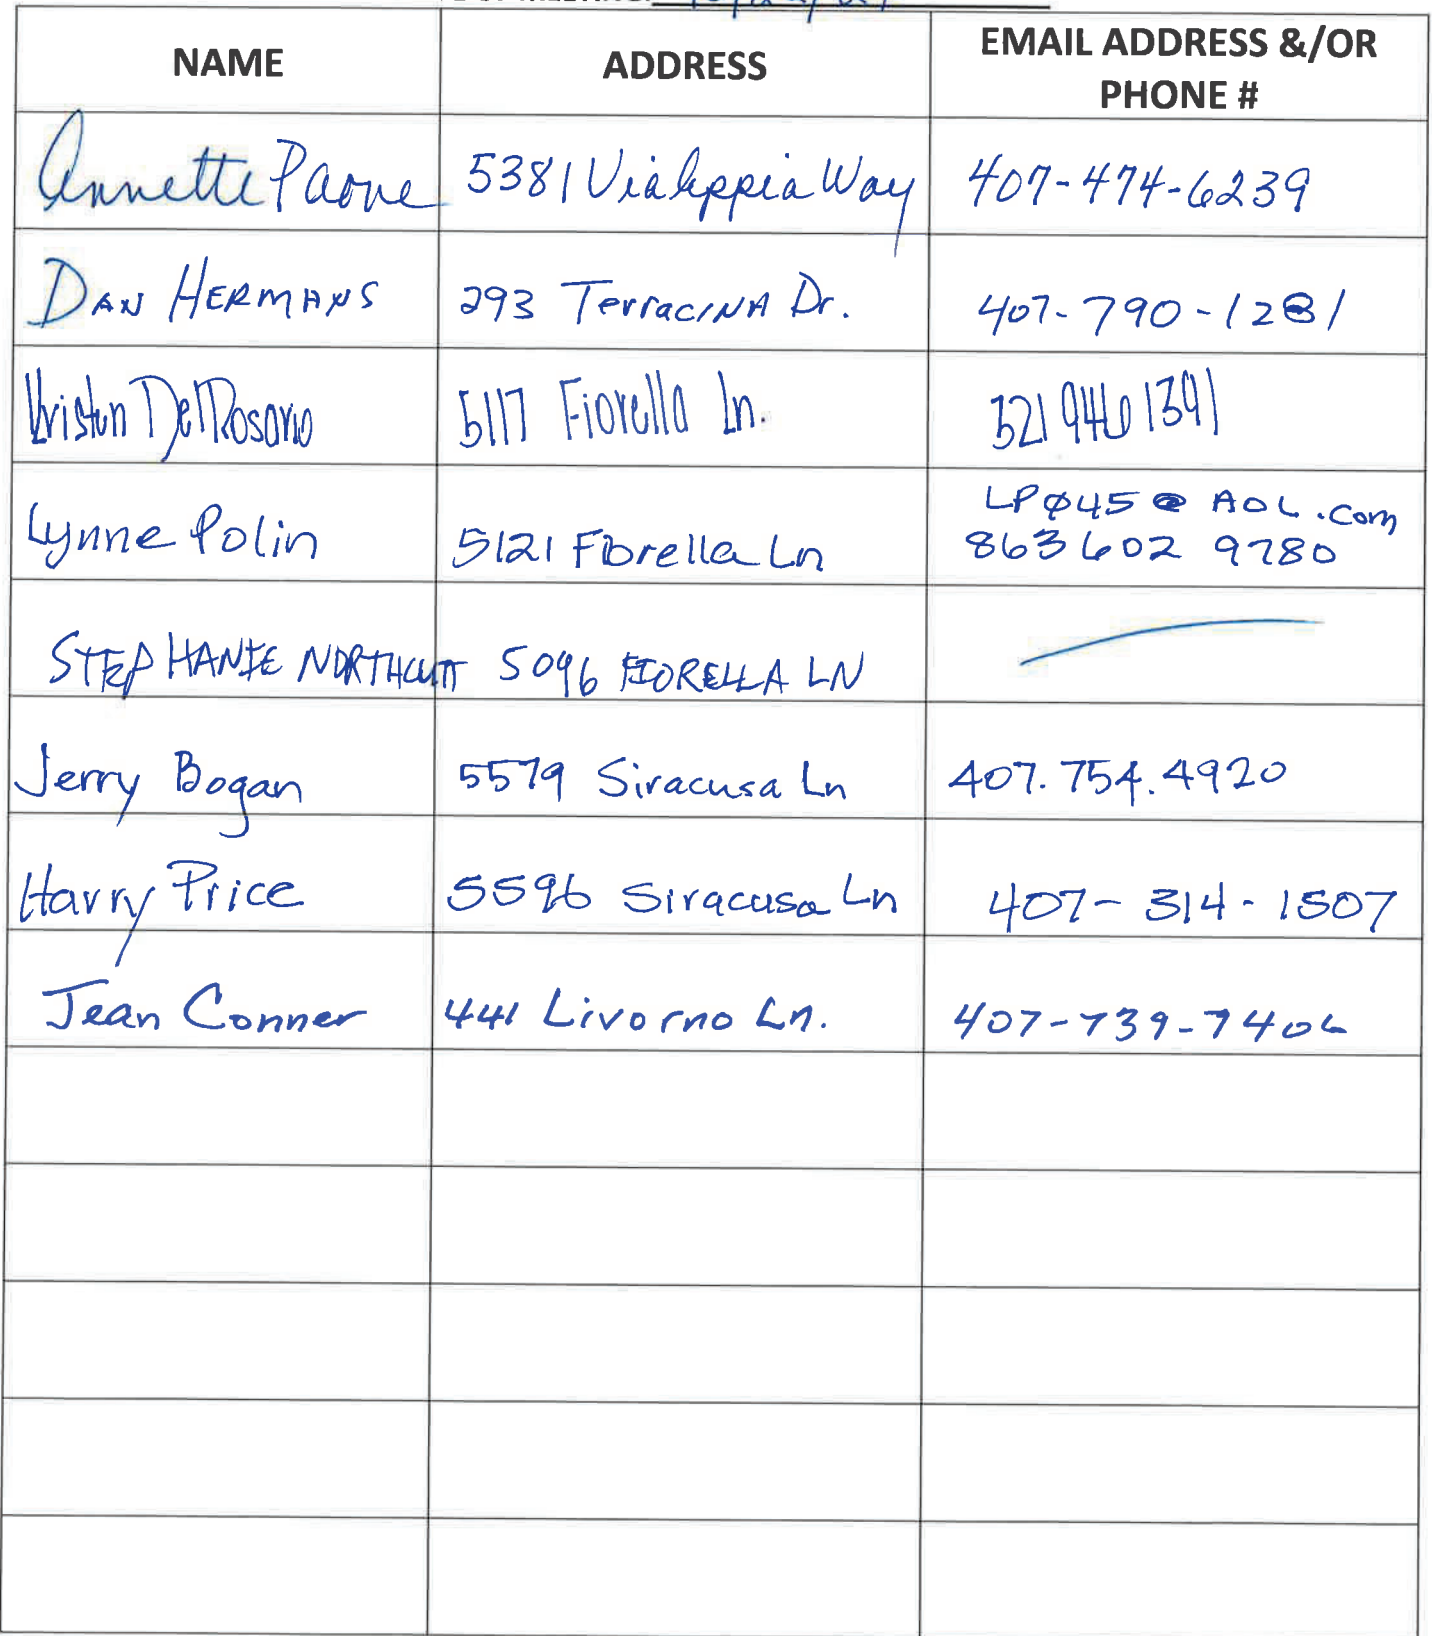 NAME ADDRESS EMAIL ADDRESS &/OR
PHONE #
Annette Paone 5381 Via Appia Way 407-474-6239
DAN HERMANS 293 TerraciNA Dr. 407-790-1281
Kristen Del Rosario 5117 Fiorella Ln. 321 946 1391
Lynne Polin 5121 Fiorella Ln LPØ45@AOL.com
863 602 9780
STEPHANIE NORTHCUTT 5096 FIORELLA LN
Jerry Bogan 5579 Siracusa Ln 407.754.4920
Harry Price 5596 Siracusa Ln 407-314-1507
Jean Conner 441 Livorno Ln. 407-739-7406